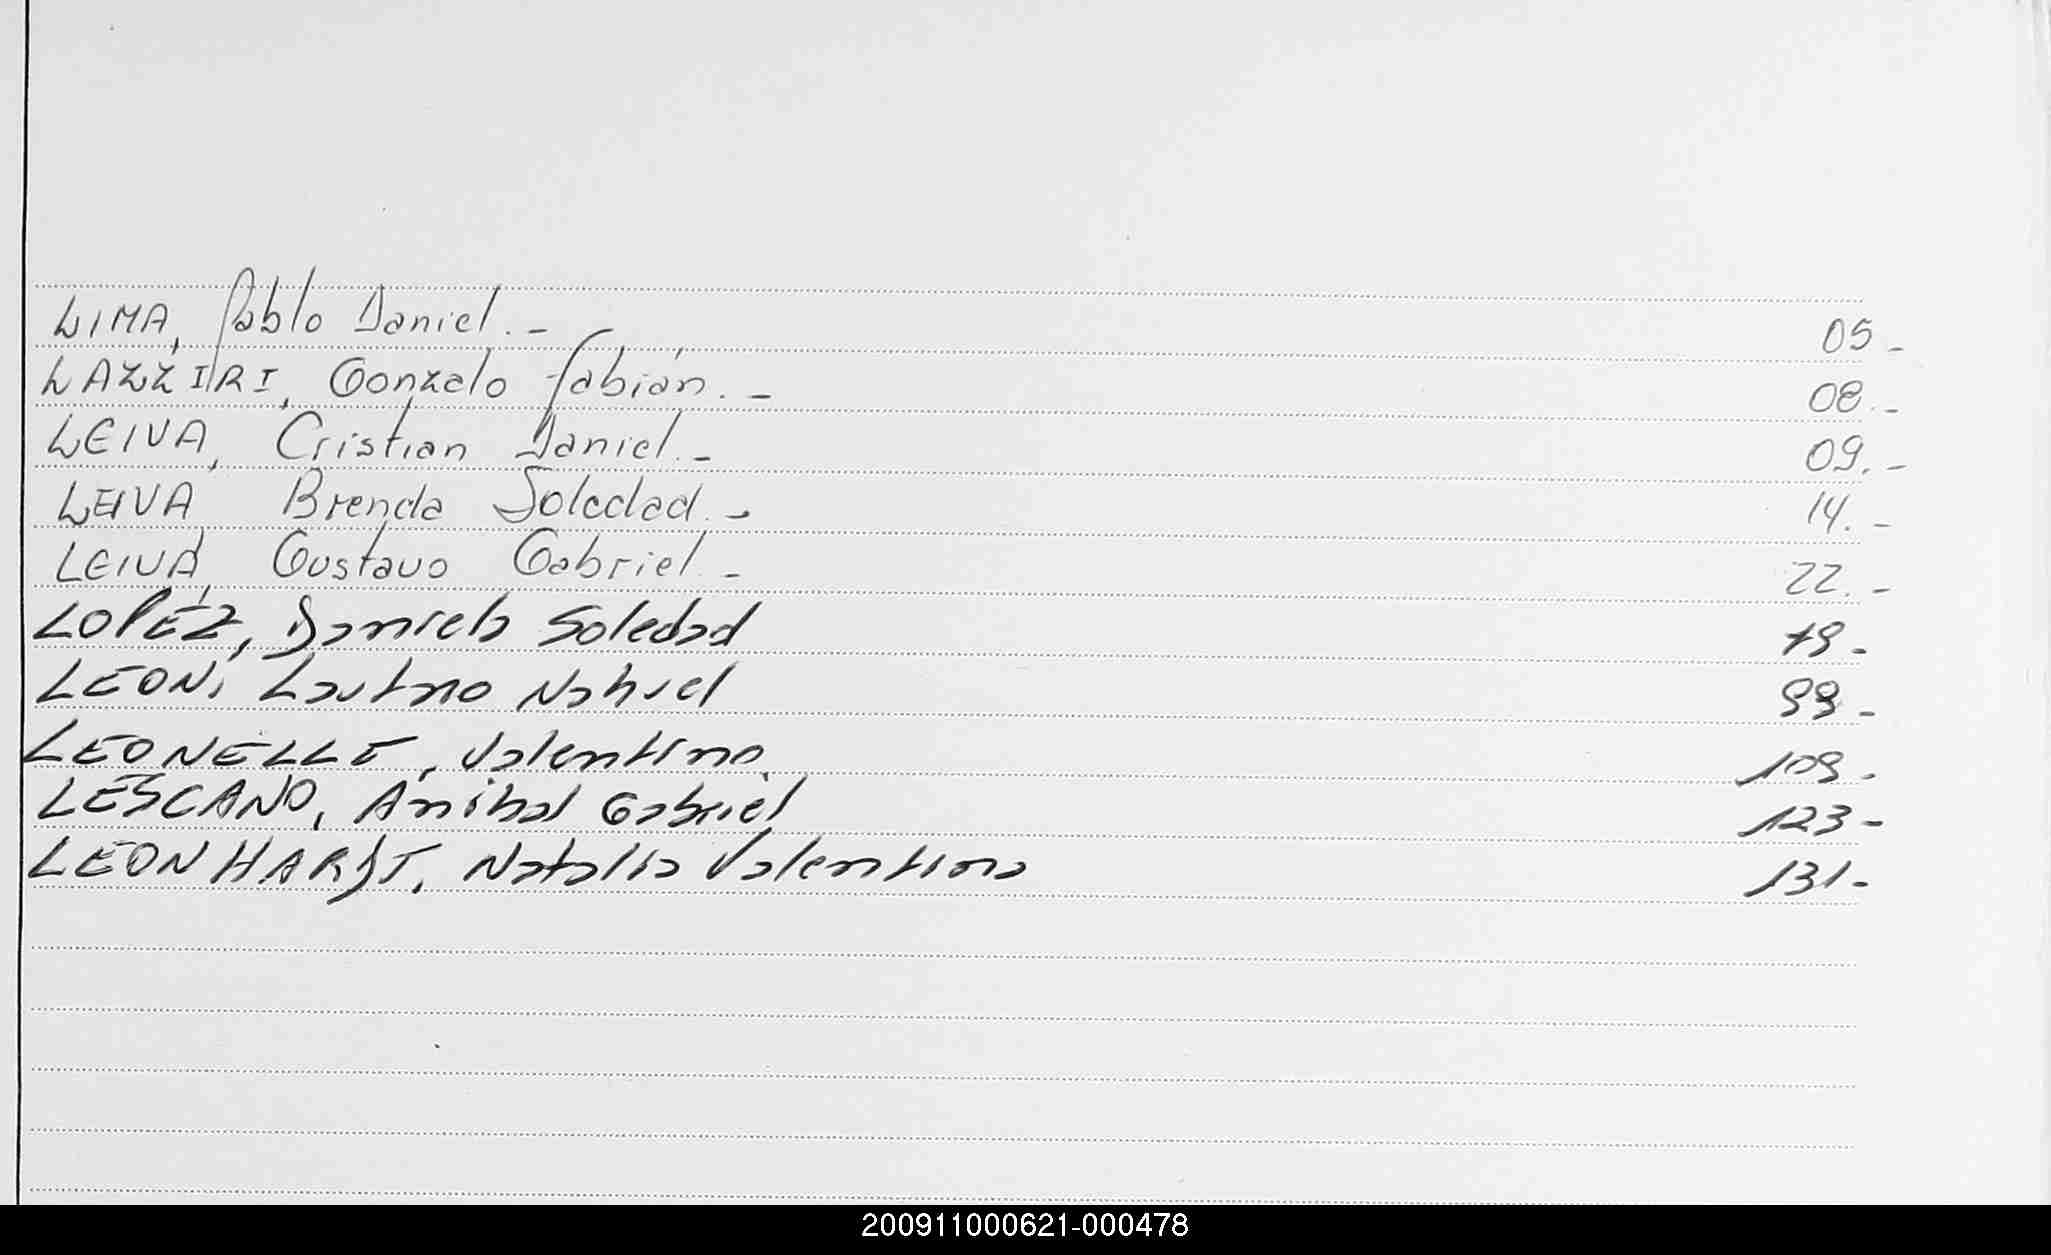 LIMA, Pablo Daniel.- 05-
LAZZIRI, Gonzalo Fabián.- 08.-
LEIVA, Cristian Daniel.- 09.-
LEIVA Brenda Soledad.- 14.-
LEIVA, Gustavo Gabriel.- 22.-
LOPÉZ, Daniela Soledad 79-
LEONI Lautaro Nahuel 99-
LEONELLE, Valentino 109-
LESCANO, Anibal Gabriel 123-
LEONHARDT, Natalia Valentina 131-
200911000621-000478